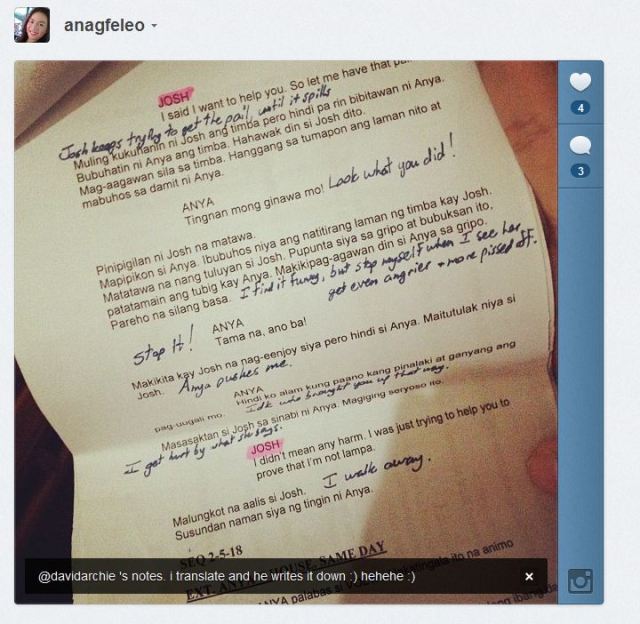 anagfeleo
JOSH
I said I want to help you. So let me have that
Josh keeps trying to get the pail, until it spills
Muling kukuhanin ni Josh ang timba pero hindi pa rin bibitawan ni Anya.
Bubuhatin ni Anya ang timba. Hahawak din si Josh dito.
Mag-aagawan sila sa timba. Hanggang sa tumapon ang laman nito at
mabuhos sa damit ni Anya.
ANYA
Tingnan mong ginawa mo! Look what you did!
Pinipigilan ni Josh na matawa.
Mapipikon si Anya. Ibubuhos niya ang natitirang laman ng timba kay Josh.
Matatawa na nang tuluyan si Josh. Pupunta siya sa gripo at bubuksan ito,
patatamain ang tubig kay Anya. Makikipag-agawan din si Anya sa gripo.
Pareho na silang basa. I find it funny, but stop myself when I see her
get even angrier + more pissed off.
ANYA
Stop It! Tama na, ano ba!
Makikita kay Josh na nag-eenjoy siya pero hindi si Anya. Maitutulak niya si
Josh. Anya pushes me.
ANYA
Hindi ko alam kung paano kang pinalaki at ganyang ang
pag-uugali mo. Idk who brought you up that way.
Masasaktan si Josh sa sinabi ni Anya. Magiging seryoso ito.
I get hurt by what she says.
JOSH
I didn't mean any harm. I was just trying to help you to
prove that I'm not lampa.
Malungkot na aalis si Josh. I walk away.
Susundan naman siya ng tingin ni Anya.
SEQ 2-5-18
EXT. HOUSE, SAME DAY
@davidarchie 's notes. i translate and he writes it down :) hehehe :)
×
ANYA palabas si
ito na animo
4
3